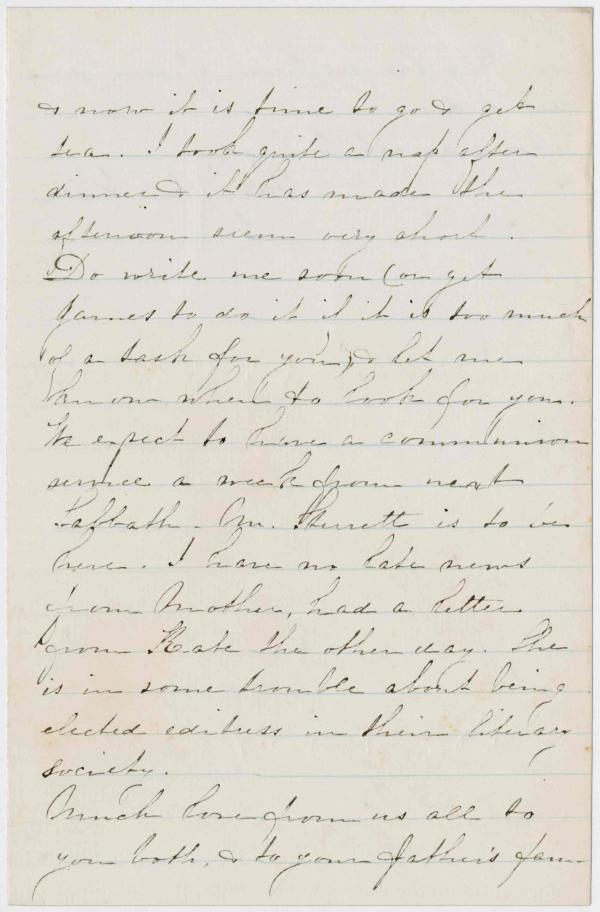 & now it is time to go & get
tea. I took quite a nap after
dinner & it has made the
afternoon seem very short.
Do write me soon (or get
James to do it if it is too much
of a task for you,) & let me
know when to look for you.
We expect to have a communion
service a week from next
Sabbath - Mr. Sterrett is to be
here. I have no late news
from Mother, had a letter
from Kate the other day. She
is in some trouble about being
elected editress in their literary
society.
Much love from us all to
you both, & to your father's fam-